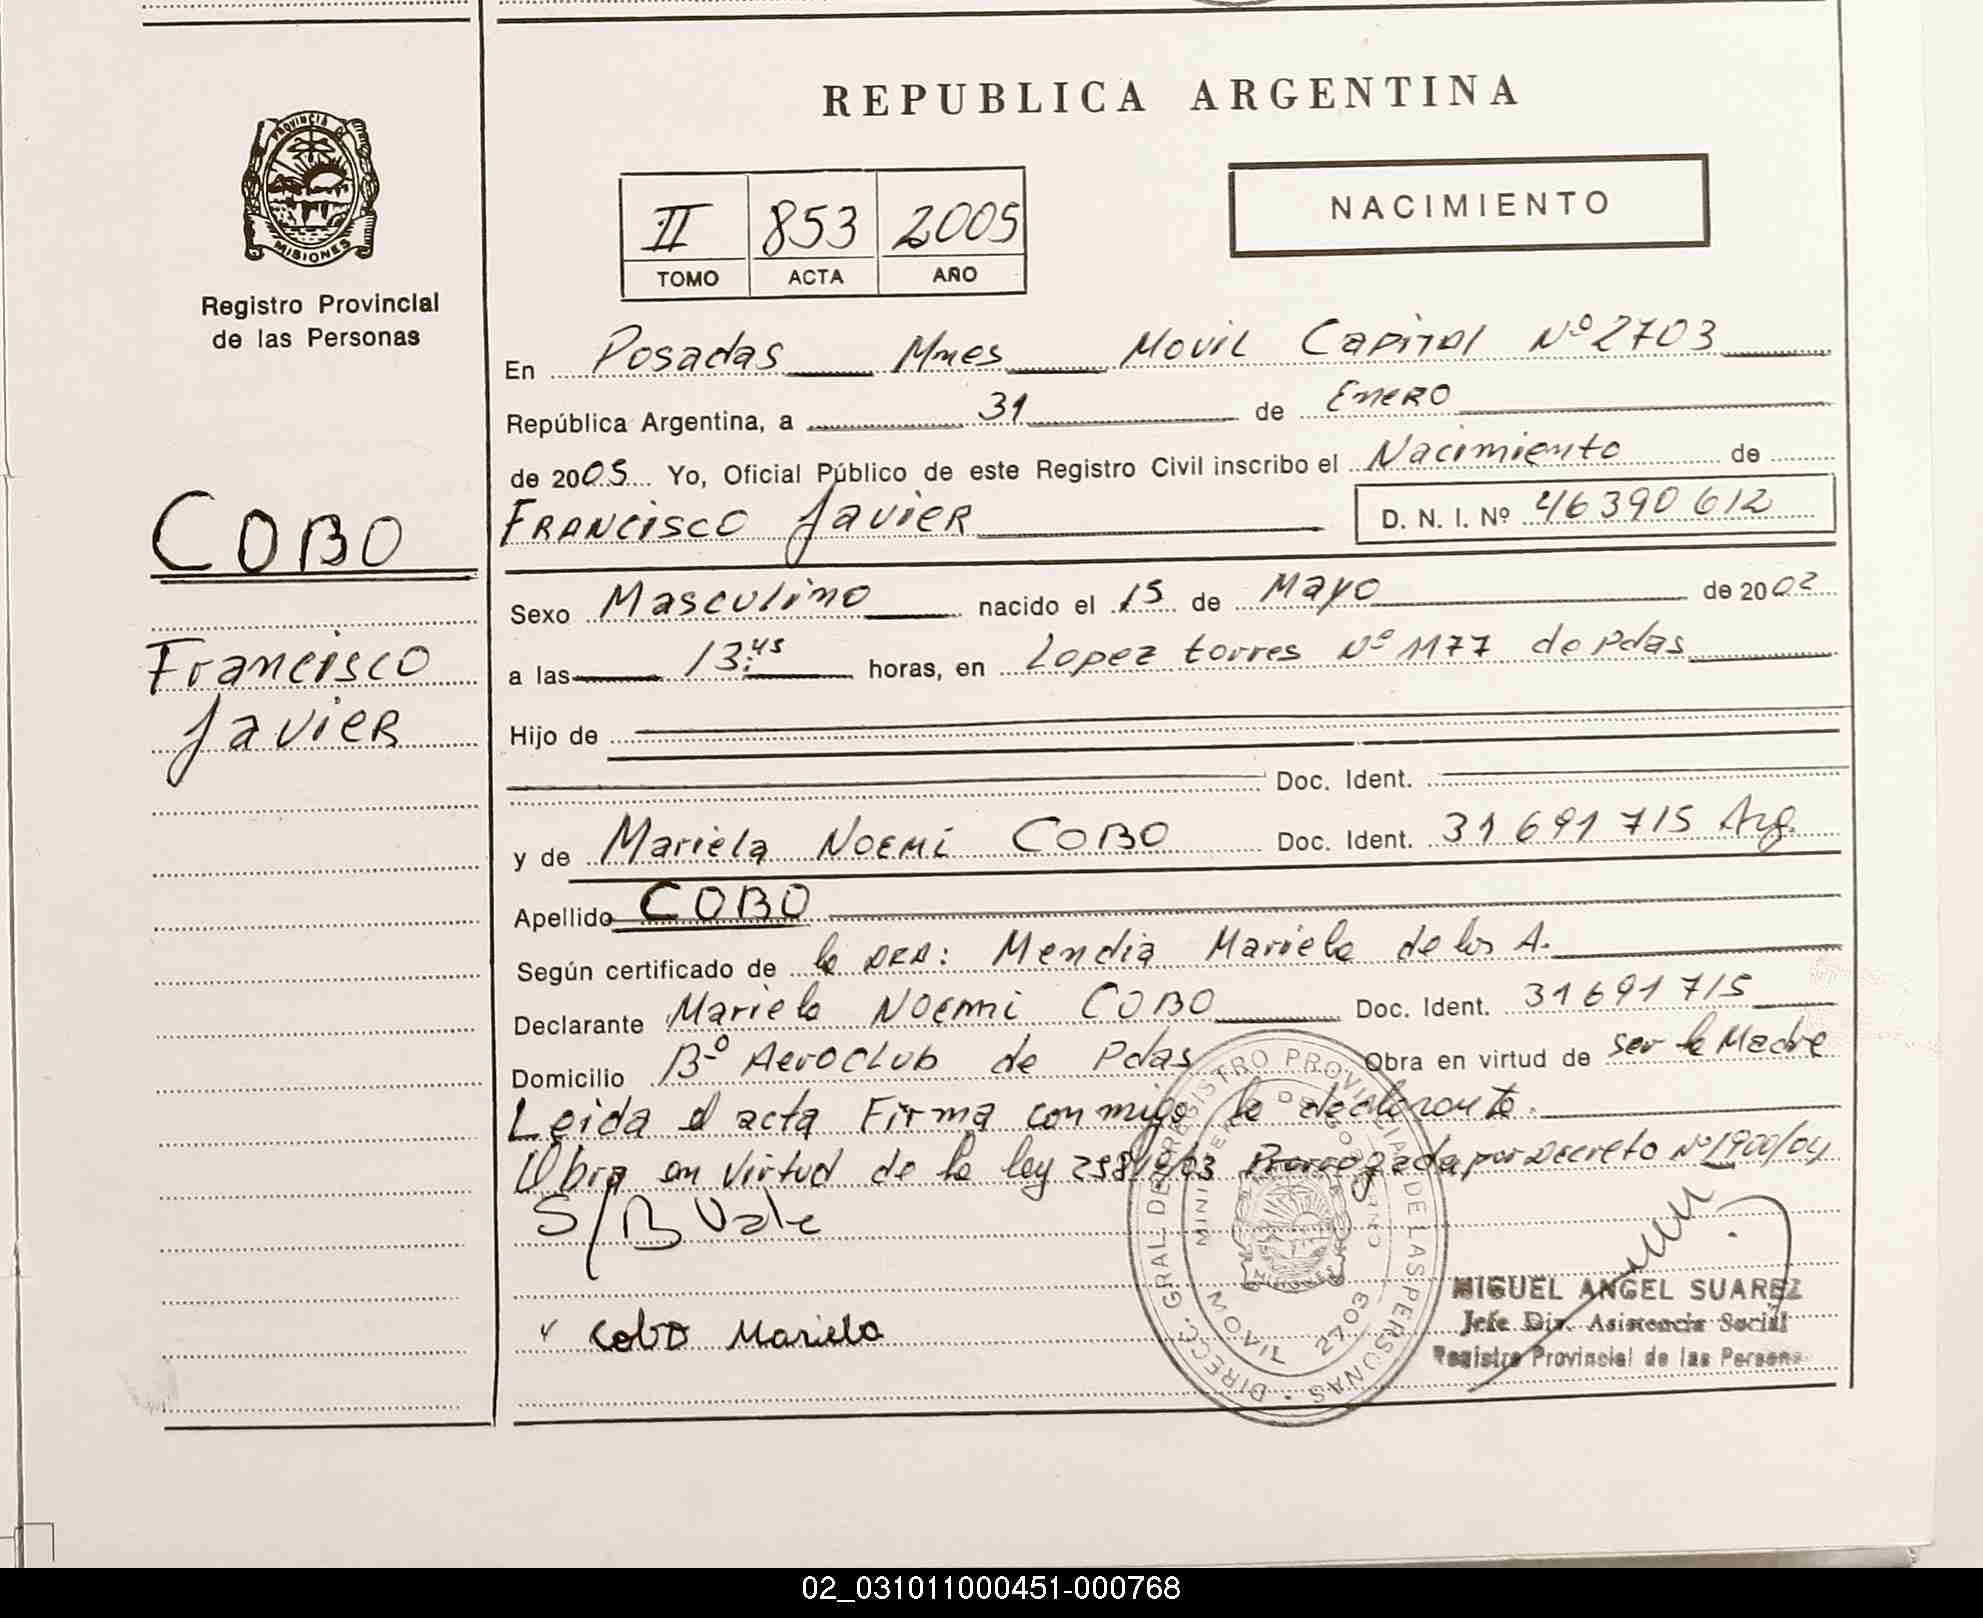 REPUBLICA ARGENTINA
PROVINCIA DE
MISIONES
Registro Provincial
de las Personas
II 853 2005
TOMO ACTA AÑO
NACIMIENTO
En Posadas Mnes Movil Capital Nº 2703
República Argentina, a 31 de Enero
de 2005 Yo, Oficial Público de este Registro Civil inscribo el Nacimiento de
Francisco Javier D. N. I. Nº 46390612
COBO
Francisco
Javier
Sexo Masculino nacido el 15 de Mayo de 2002
a las 13:45 horas, en Lopez torres Nº 1177 de Pdas
Hijo de
Doc. Ident.
y de Mariela Noemi COBO Doc. Ident. 31 691 715 Arg.
Apellido COBO
Según certificado de la DRA: Mendia Mariela de los A.
Declarante Mariela Noemi COBO Doc. Ident. 31691715
Domicilio Bº Aeroclub de Pdas Obra en virtud de ser la Madre
Leida el acta Firma conmigo la declarante.
Obra en virtud de la ley Prorrogada por Decreto Nº 1900/04
S/B Vale
Cobo Mariela
DIRECC. GRAL DE REGISTRO PROVINCIAL DE LAS PERSONAS
MINISTERIO DE GOBIERNO
MISIONES
MOVIL 2703
MIGUEL ANGEL SUAREZ
Jefe Dir. Asistencia Social
Registro Provincial de las Persona
02_031011000451-000768